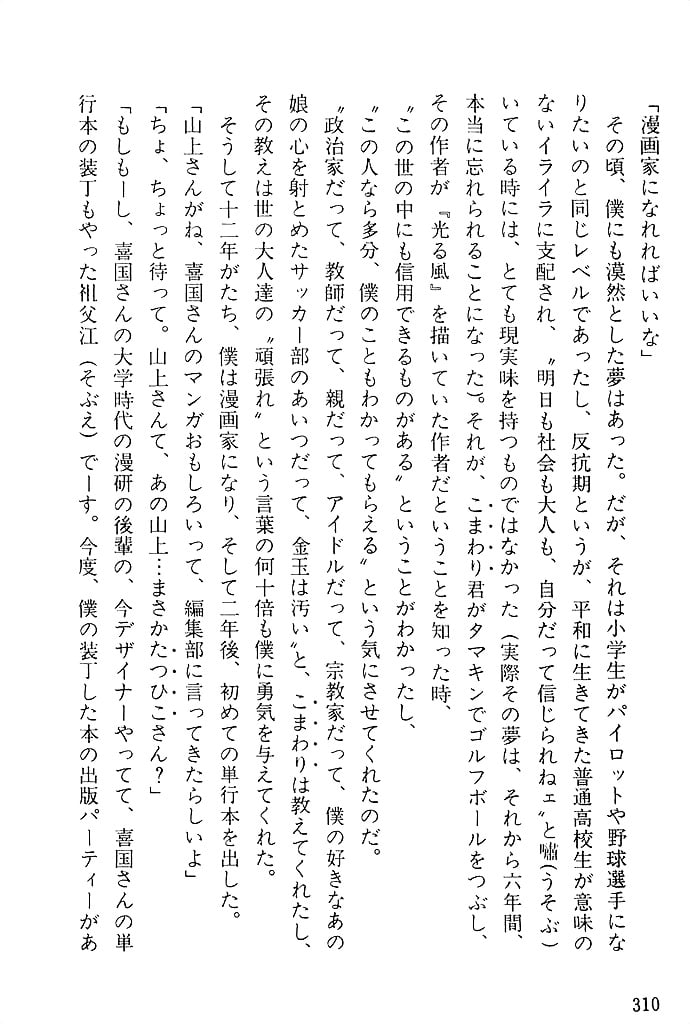 「漫画家になれればいいな」
その頃、僕にも漠然とした夢はあった。だが、それは小学生がパイロットや野球選手にな
りたいのと同じレベルであったし、反抗期というが、平和に生きてきた普通高校生が意味の
ないイライラに支配され、〝明日も社会も大人も、自分だって信じられねェ〟と嘯(うそぶ)
いている時には、とても現実味を持つものではなかった（実際その夢は、それから六年間、
本当に忘れられることになった）。それが、こまわり君がタマキンでゴルフボールをつぶし、
その作者が『光る風』を描いていた作者だということを知った時、
〝この世の中にも信用できるものがある〟ということがわかったし、
〝この人なら多分、僕のこともわかってもらえる〟という気にさせてくれたのだ。
〝政治家だって、教師だって、親だって、アイドルだって、宗教家だって、僕の好きなあの
娘の心を射とめたサッカー部のあいつだって、金玉は汚い〟と、こまわりは教えてくれたし、
その教えは世の大人達の〝頑張れ〟という言葉の何十倍も僕に勇気を与えてくれた。
そうして十二年がたち、僕は漫画家になり、そして二年後、初めての単行本を出した。
「山上さんがね、喜国さんのマンガおもしろいって、編集部に言ってきたらしいよ」
「ちょ、ちょっと待って。山上さんて、あの山上…まさかたつひこさん？」
「もしもーし、喜国さんの大学時代の漫研の後輩の、今デザイナーやってて、喜国さんの単
行本の装丁もやった祖父江（そぶえ）でーす。今度、僕の装丁した本の出版パーティーがあ
310